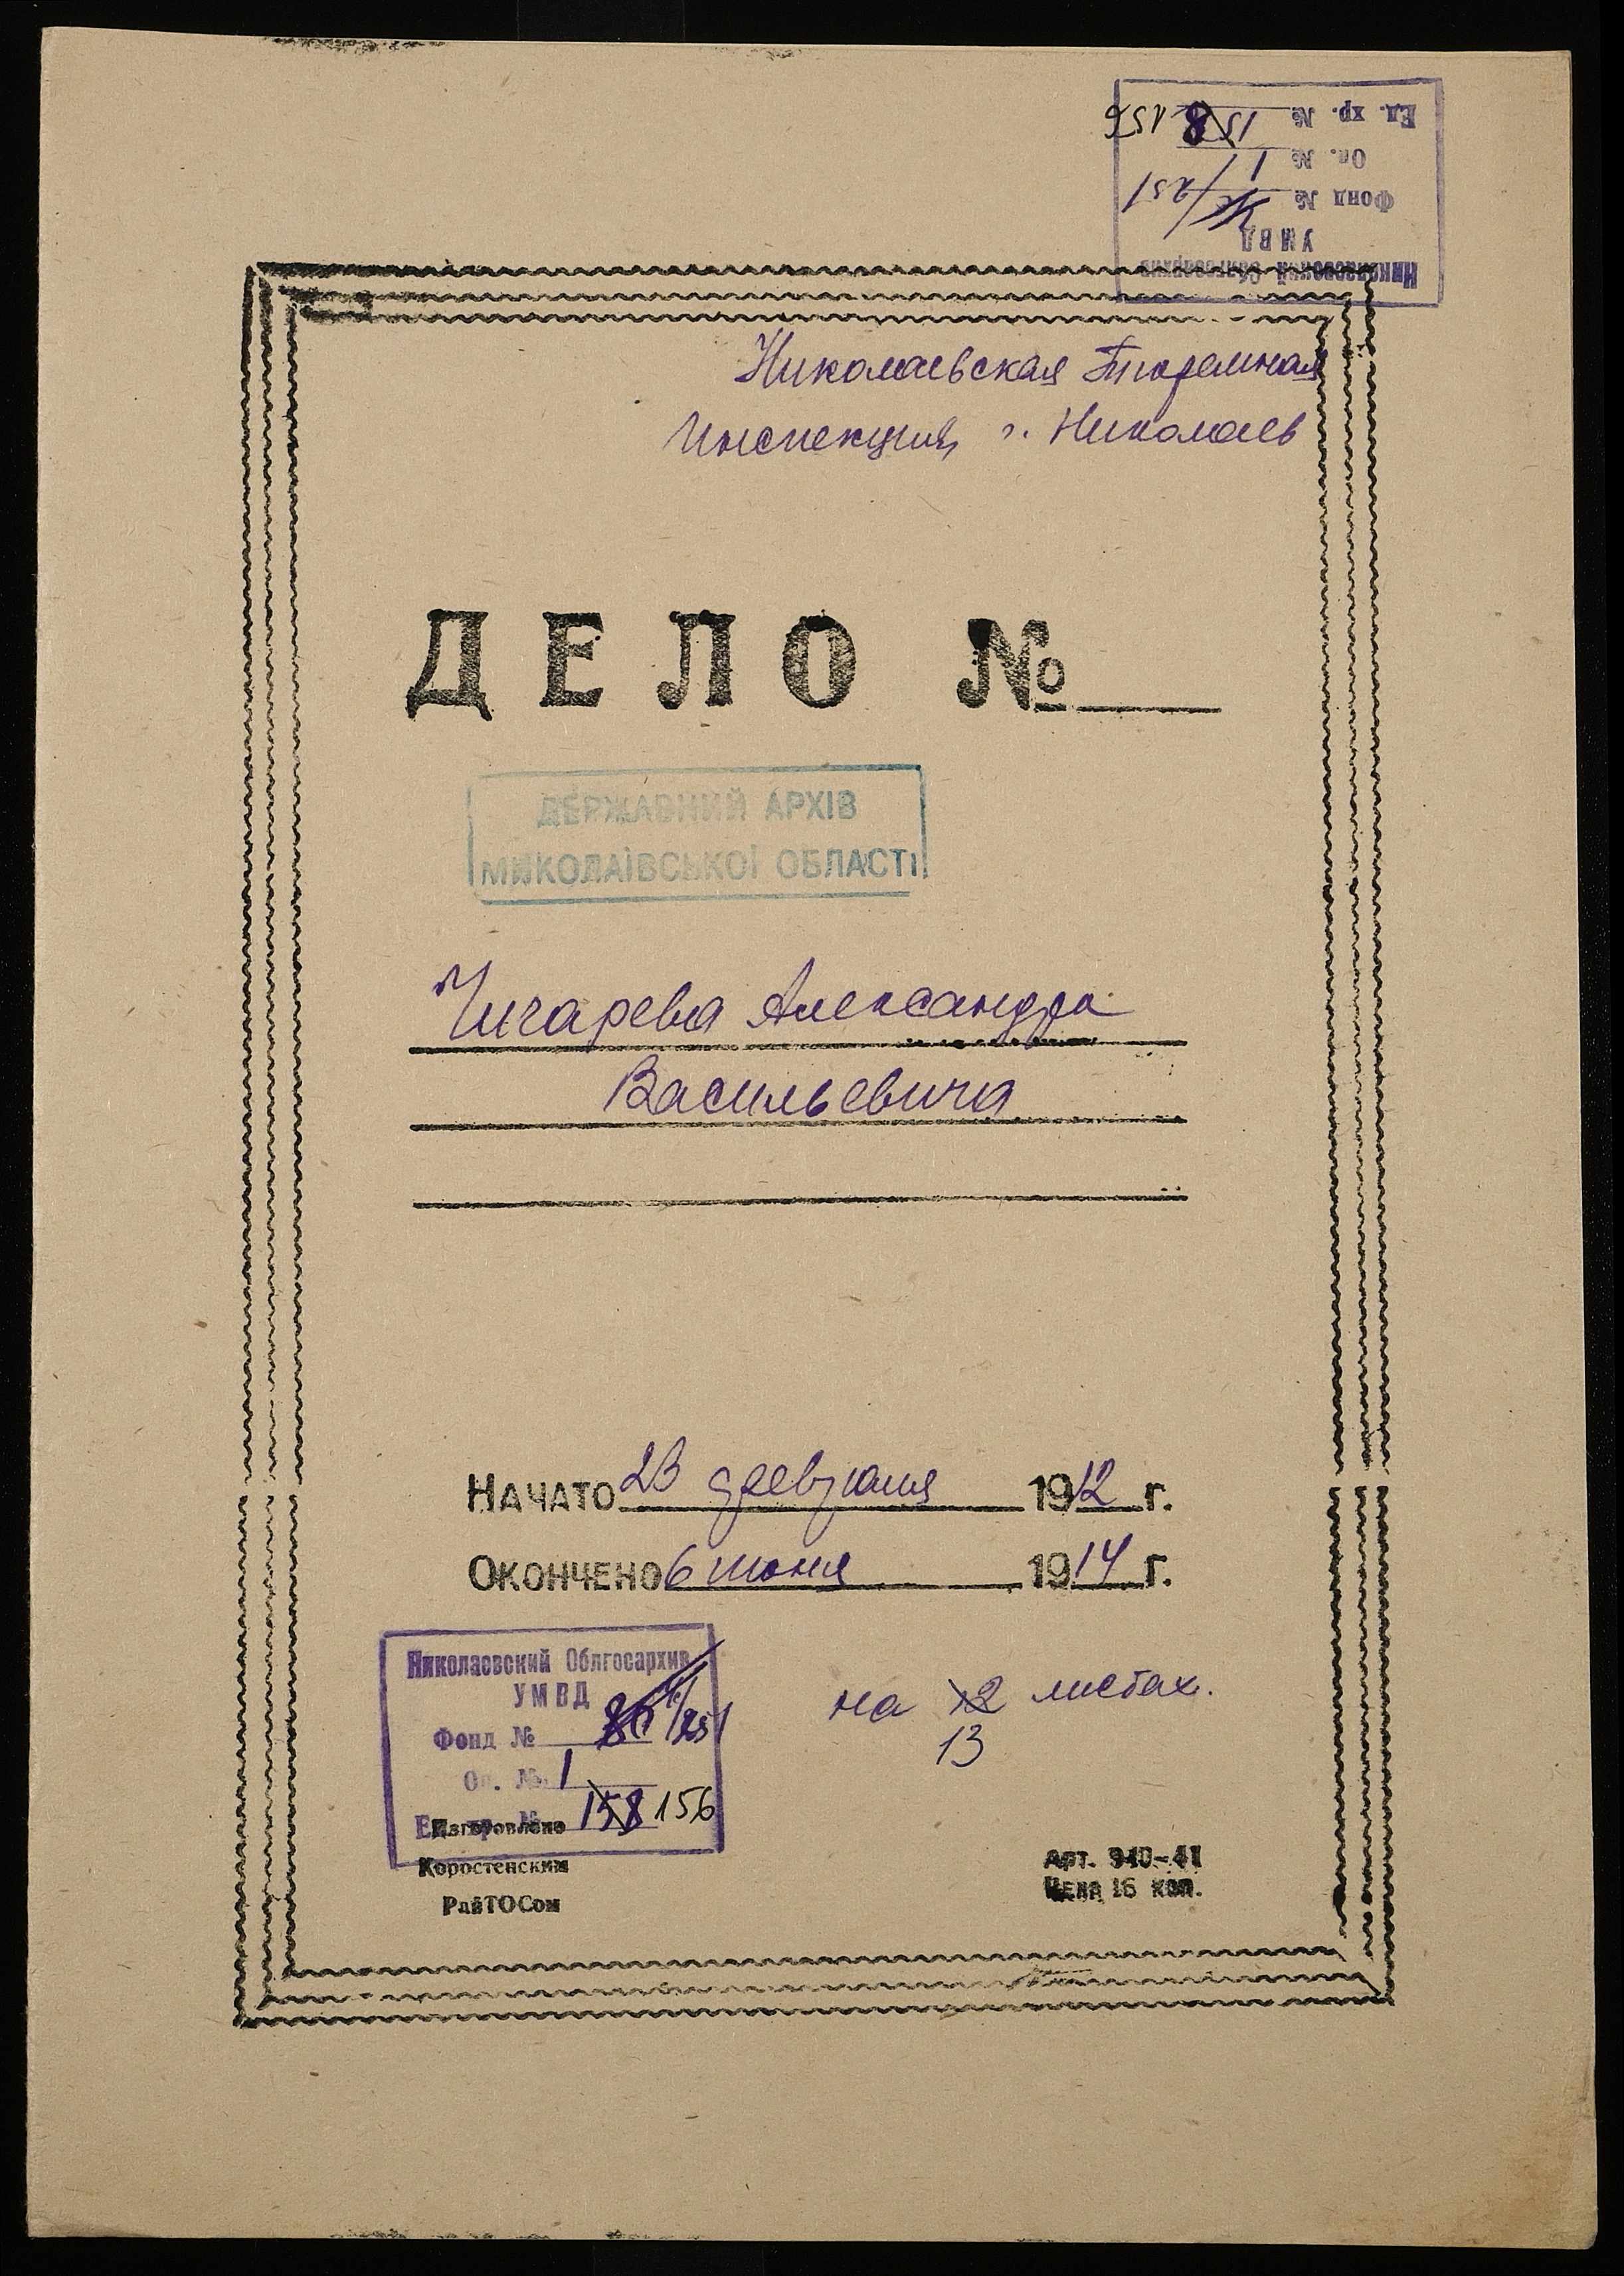 Николаевский Облгосархив
УМВД
Фонд № 251
Оп. № 1
Ед. хр. № 158 156
Николаевская Тюремная
Инспекция, г. Николаев
ДЕЛО №
ДЕРЖАВНИЙ АРХІВ
МИКОЛАЇВСЬКОЇ ОБЛАСТІ
Чичарева Александра
Васильевича
НАЧАТО 23 февраля 1912 г.
ОКОНЧЕНО 6 июня 1914 г.
Николаевский Облгосархив
УМВД
Фонд № /251
Оп. № 1
158 156
на 12 листах.
13
Изготовлено
Коростенским
РайТОСом
Арт. 940-41
Цена 16 коп.